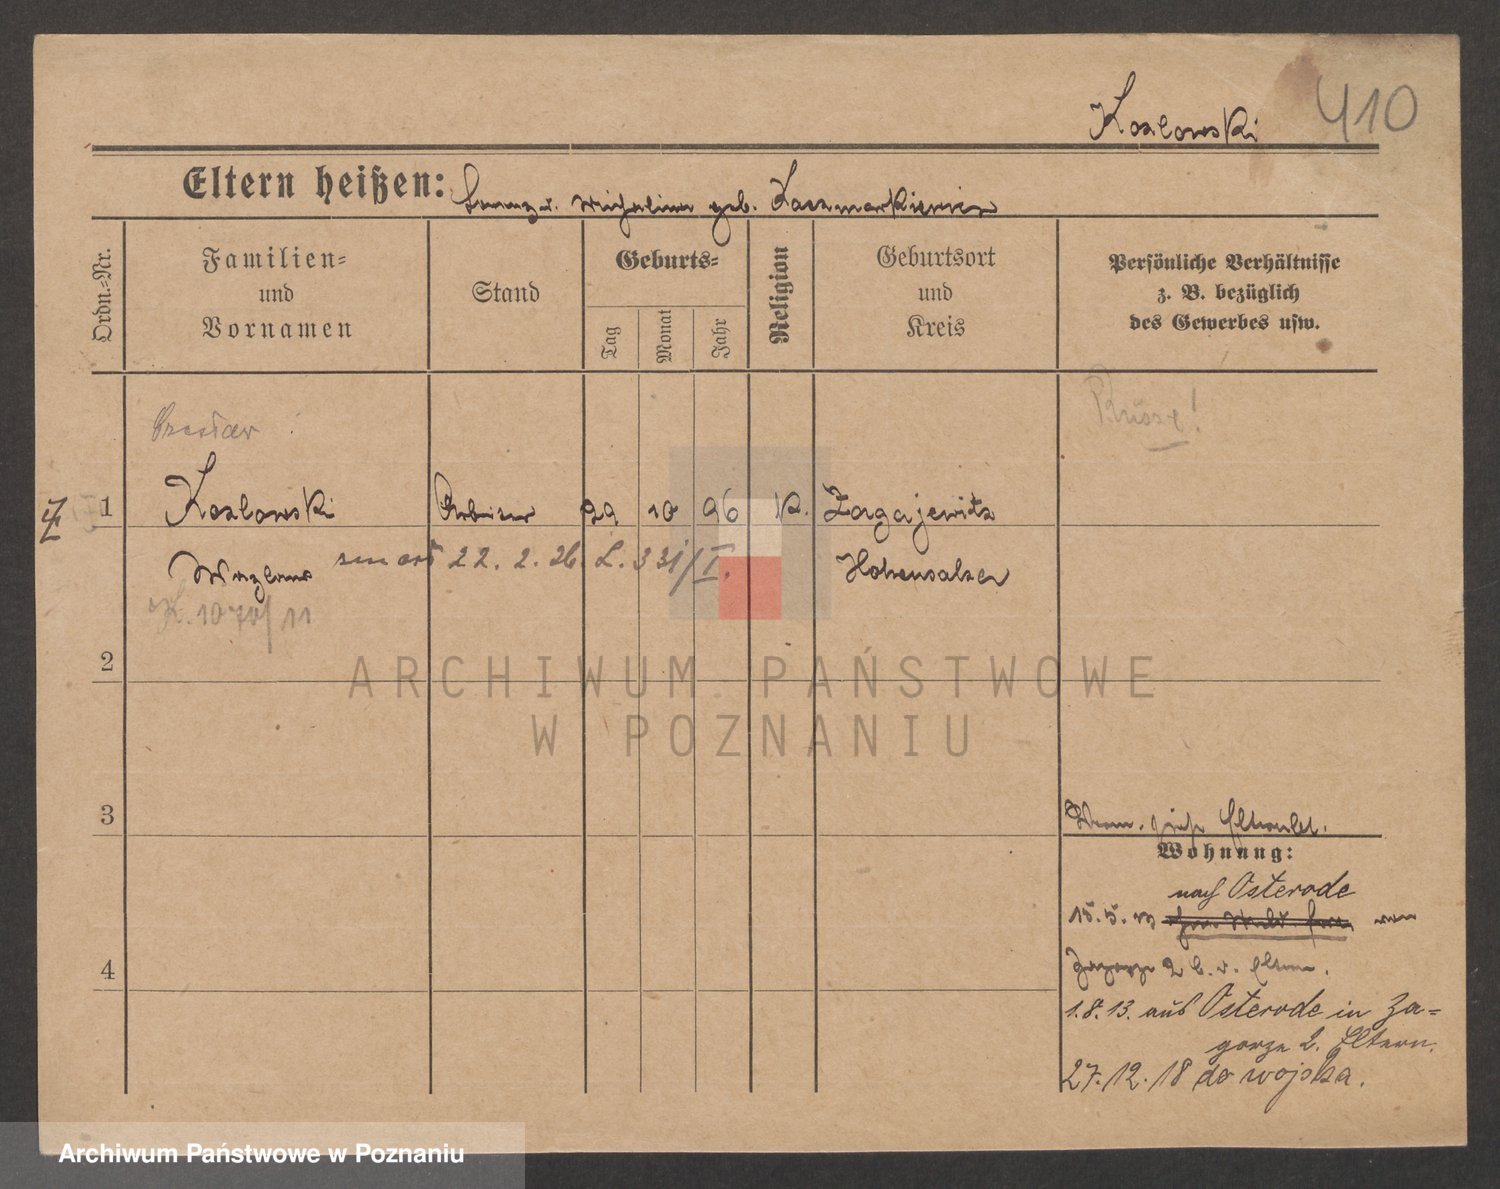 Koslowski 410
Eltern heißen: Franz u. geb. Kaczmarkiewicz
Ordn.-Nr.
Familien-
und
Vornamen
Stand
Geburts-
Tag
Monat
Jahr
Religion
Geburtsort
und
Kreis
Persönliche Verhältnisse
z. B. bezüglich
des Gewerbes usw.
1 Koslowski Arbeiter 29 10 96 K. Zagajewitz
22. 2. 26. L. 331/I.
Hohensalza
K. 1070/11
2
3
4
Wohnung:
nach Osterode
15.5.13
2 b. d. Eltern.
1.8.13. aus Osterode in Za=
gorze 2. Eltern.
27.12.18 do wojska.
ARCHIWUM PAŃSTWOWE
W POZNANIU
Archiwum Państwowe w Poznaniu